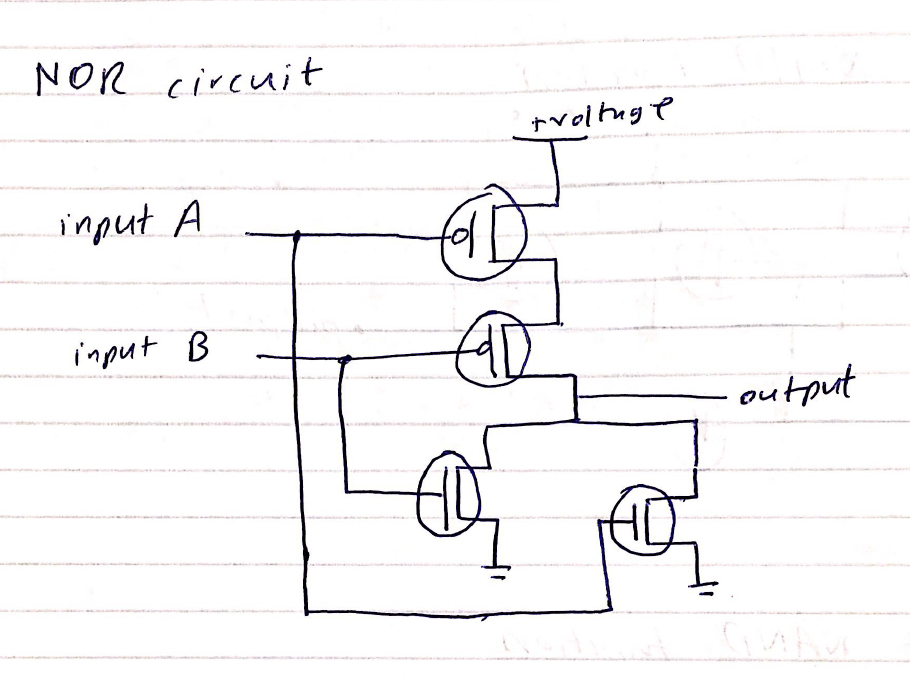 NOR circuit
+voltage
input A
input B
output